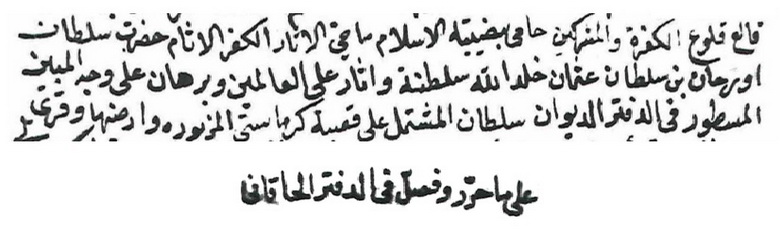 قالع قلوع الكفرة والمشركين حامى بيضة الاسلام ماحى الاثار الكفر الاثام حضرت سلطان
اورخان بن سلطان عثمان خلد الله سلطنة واثار على العالمين وبرهان على وجه المبين
المسطور فى الدفتر الديوان سلطان المشتمل على قصبة كرماستى المزبوره وارضنها وقرى
على ما حرّر وفصل فى الدفتر الخاقانى